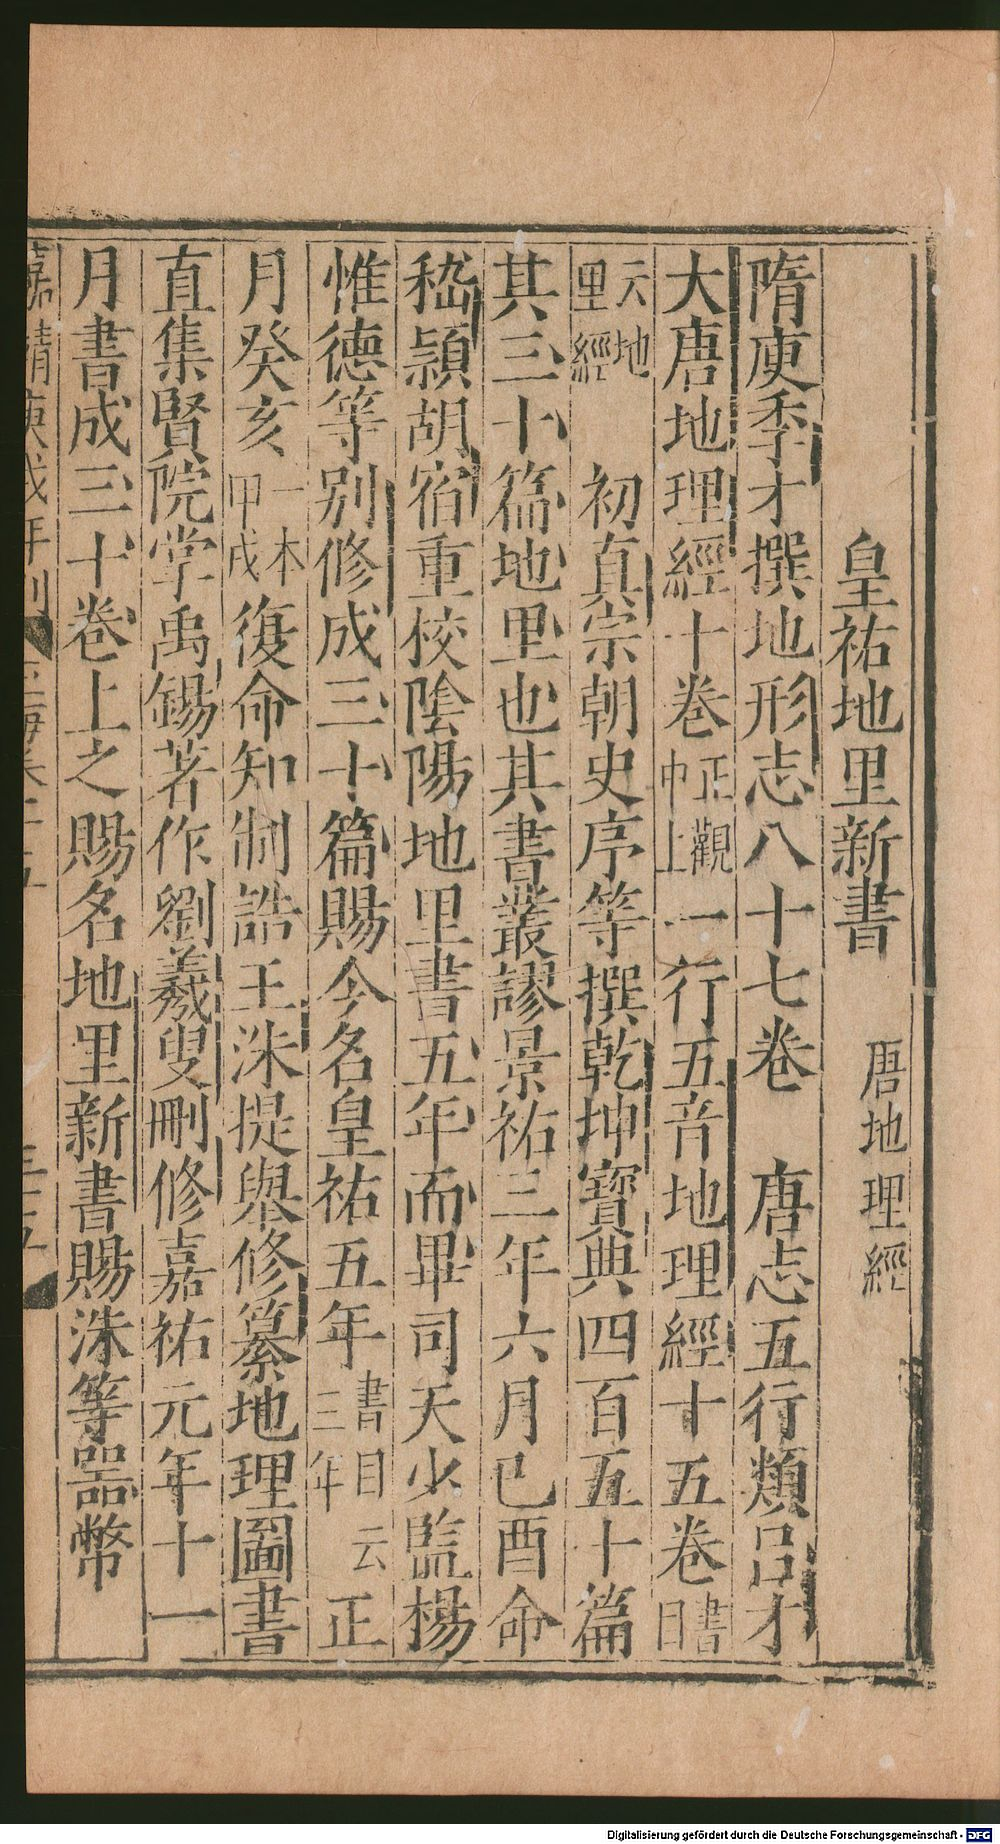 皇祐地里新書　唐地理經
隋庾季才撰地形志八十七卷　唐志五行類呂才
大唐地理經十卷正觀中上一行五音地理經十五卷書目
云地里經　初真宗朝史序等撰乾坤寶典四百五十篇
其三十篇地里也其書叢謬景祐三年六月己酉命
嵇穎胡宿重校陰陽地里書五年而畢司天少監楊
惟德等別修成三十篇賜今名皇祐五年書目云三年正
月癸亥一本甲戌復命知制誥王洙提舉修纂地理圖書
直集賢院掌禹錫著作劉羲叟刪修嘉祐元年十一
月書成三十卷上之賜名地里新書賜洙等器幣
嘉靖庚戌年刊
Digitalisierung gefördert durch die Deutsche Forschungsgemeinschaft - DFG